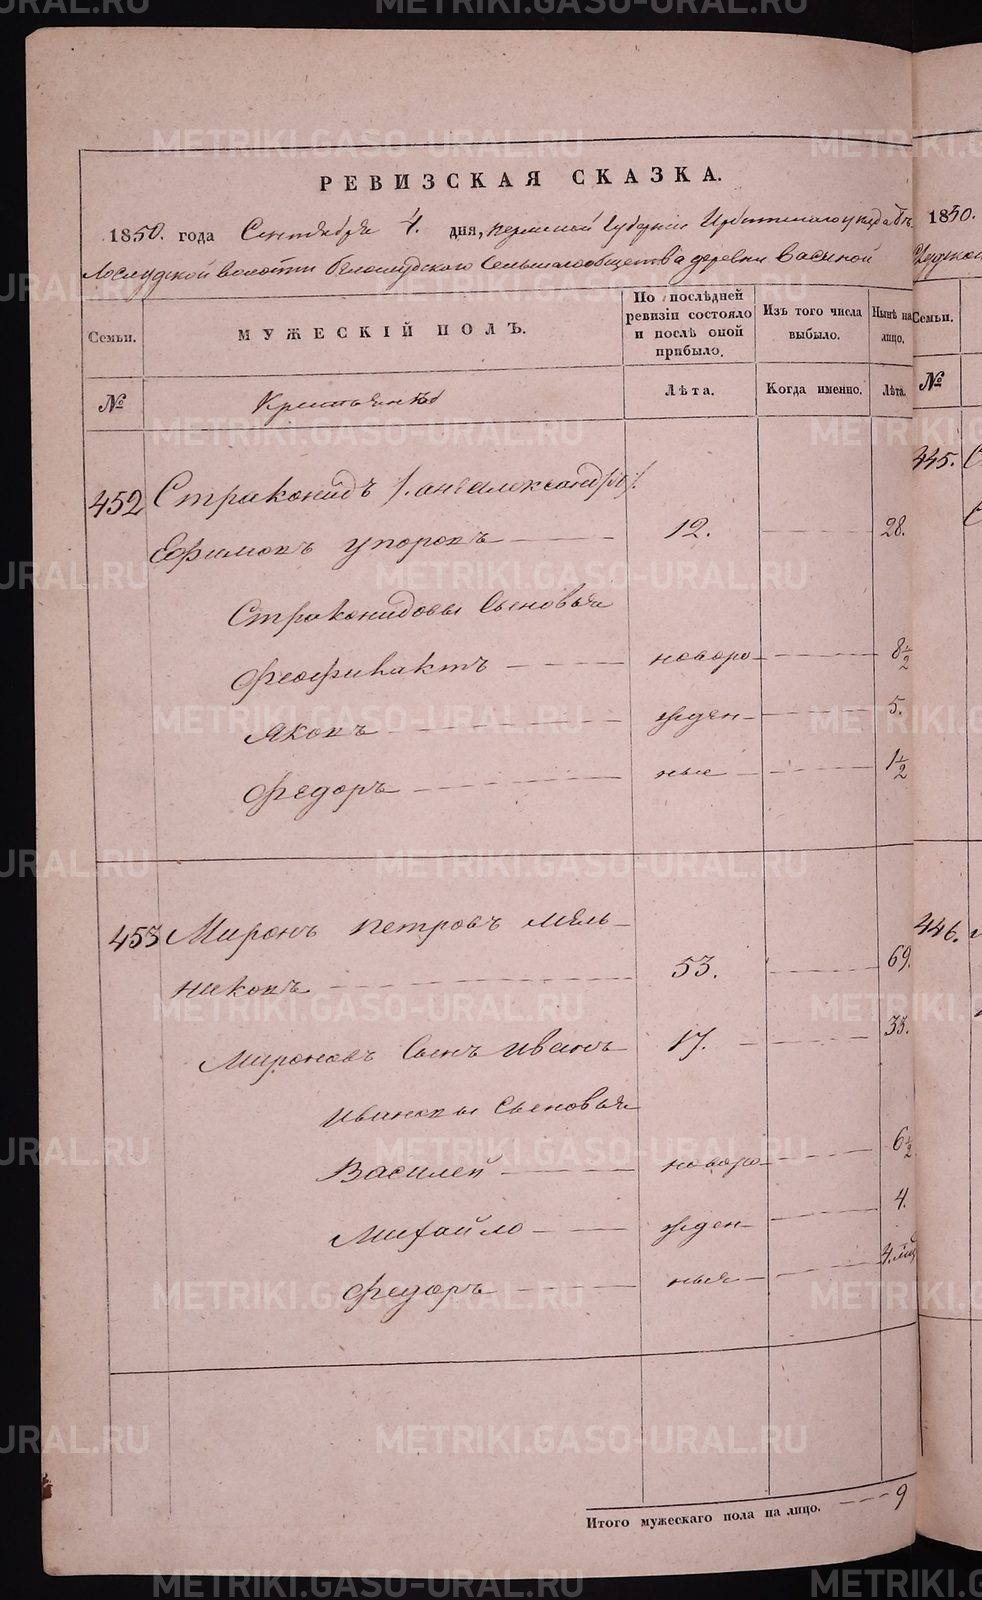 РЕВИЗСКАЯ СКАЗКА.
1850. года Сентября 4. дня, Пермской Губернии Ирбитскаго уезда Бѣ-
лослудской волости Белослудского Сельскаго общества деревни
Семьи.
МУЖЕСКІЙ ПОЛЪ.
По послѣдней ревизіи состояло и послѣ оной прибыло.
Изъ того числа выбыло.
Нынѣ на лицо.
№
Крестьянъ
Лѣта.
Когда именно.
Лѣта.
452 Стратонидъ
Ефимовъ 12. 28.
Стратонидовы Сыновья
Феофилактъ новоро- 8½
Яковъ жден- 5.
Федоръ ные 1½
453 Миронъ Петровъ Мель-
никовъ 53. 69.
Мироновъ Сынъ Иванъ 17. 33.
Ивановы Сыновья
Василей новоро- 6½
Михайло жден- 4.
Федоръ ныя 4. мѣс
Итого мужескаго пола на лицо. 9
1850.
Семьи.
№
445.
446.
METRIKI.GASO-URAL.RU